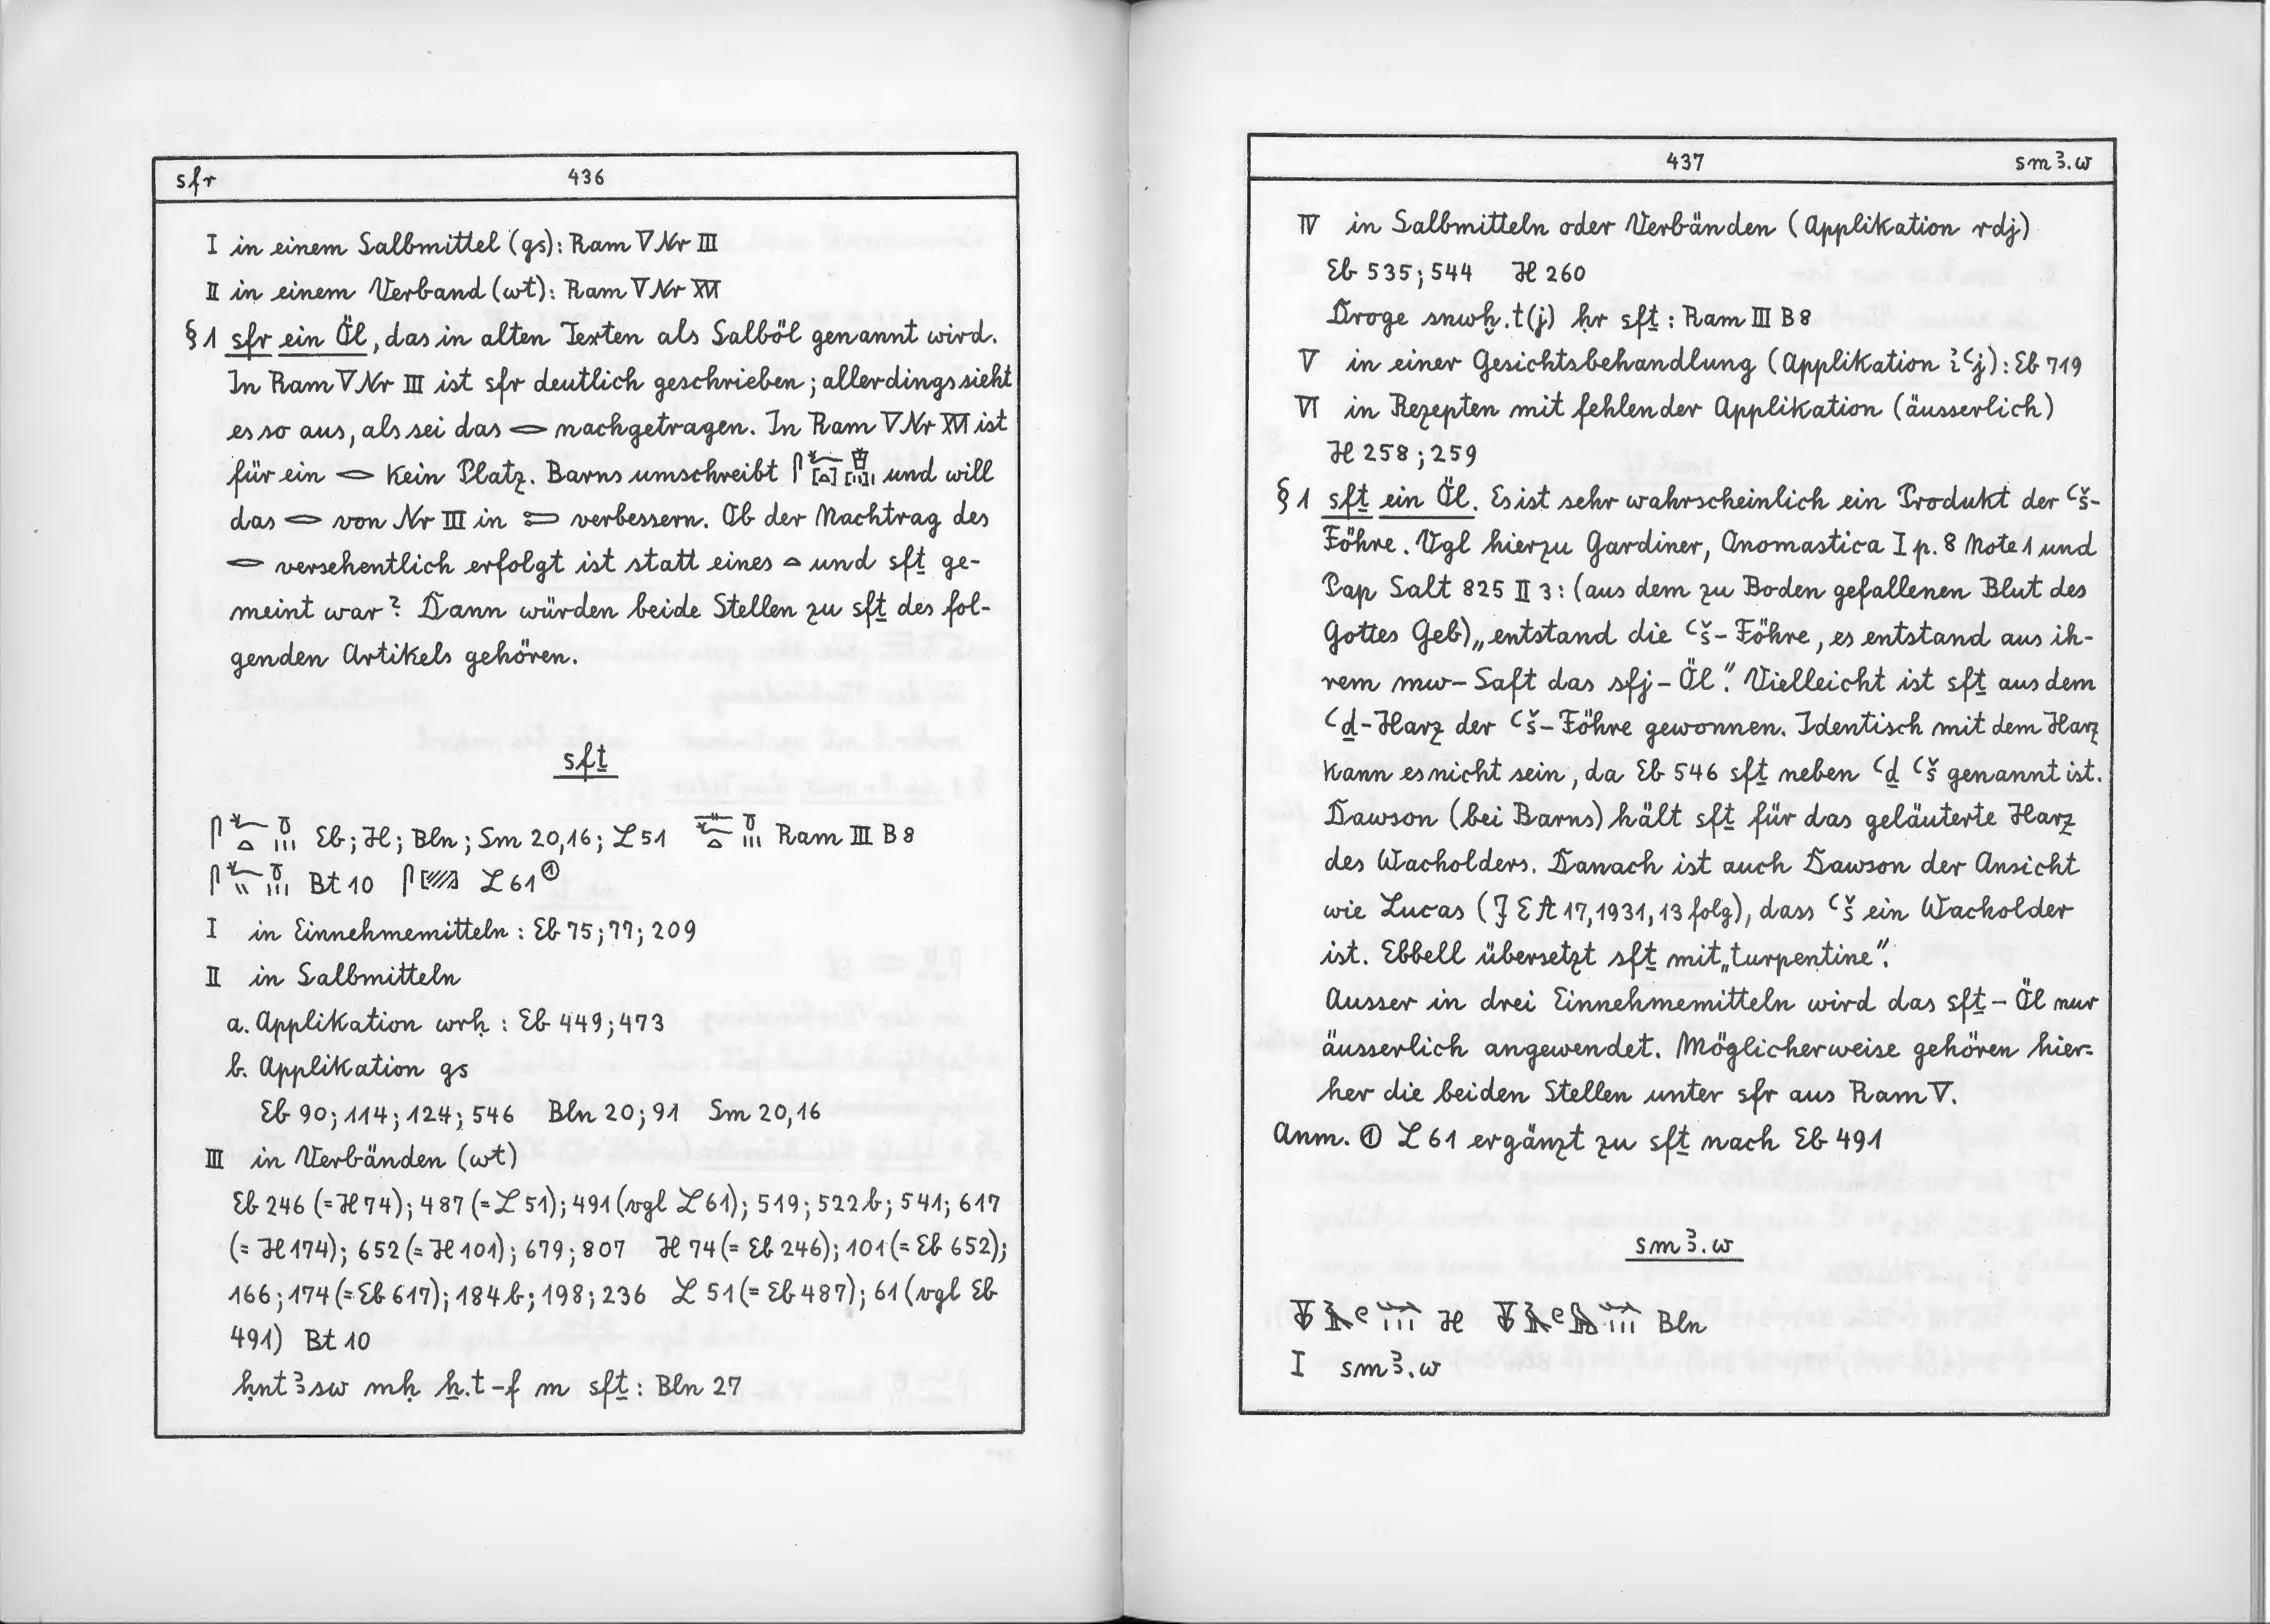 sfr 436
I in einem Salbmittel (gs): Ram V Nr III
II in einem Verband (wt): Ram V Nr XVI
§ 1 sfr ein Öl, das in alten Texten als Salböl genannt wird.
In Ram V Nr III ist sfr deutlich geschrieben; allerdings sieht
es so aus, als sei das 𓂋 nachgetragen. In Ram V Nr XVI ist
für ein 𓂋 kein Platz. Barns umschreibt und will
das 𓂋 von Nr III in 𓍿 verbessern. Ob der Nachtrag des
𓂋 versehentlich erfolgt ist statt eines 𓏏 und sfṯ ge-
meint war? Dann würden beide Stellen zu sfṯ des fol-
genden Artikels gehören.
sfṯ
Eb; H; Bln; Sm 20,16; L 51 Ram III B 8
Bt 10 L 61 ①
I in Einnehmemitteln: Eb 75; 77; 209
II in Salbmitteln
a. Applikation wrḥ: Eb 449; 473
b. Applikation gs
Eb 90; 114; 124; 546 Bln 20; 91 Sm 20,16
III in Verbänden (wt)
Eb 246 (= H 74); 487 (= L 51); 491 (vgl L 61); 519; 522 b; 541; 617
(= H 174); 652 (= H 101); 679; 807 H 74 (= Eb 246); 101 (= Eb 652);
166; 174 (= Eb 617); 184 b; 198; 236 L 51 (= Eb 487); 61 (vgl Eb
491) Bt 10
ḥntꜣsw mḥ ẖ.t-f m sfṯ: Bln 27
437 smꜣ.w
IV in Salbmitteln oder Verbänden (Applikation rdj)
Eb 535; 544 H 260
Droge snwḫ.t(j) ḥr sfṯ: Ram III B 8
V in einer Gesichtsbehandlung (Applikation iꜥj): Eb 719
VI in Rezepten mit fehlender Applikation (äusserlich)
H 258; 259
§ 1 sfṯ ein Öl. Es ist sehr wahrscheinlich ein Produkt der ꜥš-
Föhre. Vgl hierzu Gardiner, Onomastica I p. 8 Note 1 und
Pap Salt 825 II 3: (aus dem zu Boden gefallenen Blut des
Gottes Geb) „entstand die ꜥš-Föhre, es entstand aus ih-
rem mw-Saft das sfj-Öl". Vielleicht ist sfṯ aus dem
ꜥḏ-Harz der ꜥš-Föhre gewonnen. Identisch mit dem Harz
kann es nicht sein, da Eb 546 sfṯ neben ꜥḏ ꜥš genannt ist.
Dawson (bei Barns) hält sfṯ für das geläuterte Harz
des Wacholders. Danach ist auch Dawson der Ansicht
wie Lucas (JEA 17, 1931, 13 folg), dass ꜥš ein Wacholder
ist. Ebbell übersetzt sfṯ mit „turpentine".
Ausser in drei Einnehmemitteln wird das sfṯ-Öl nur
äusserlich angewendet. Möglicherweise gehören hier-
her die beiden Stellen unter sfr aus Ram V.
Anm. ① L 61 ergänzt zu sfṯ nach Eb 491
smꜣ.w
H Bln
I smꜣ.w